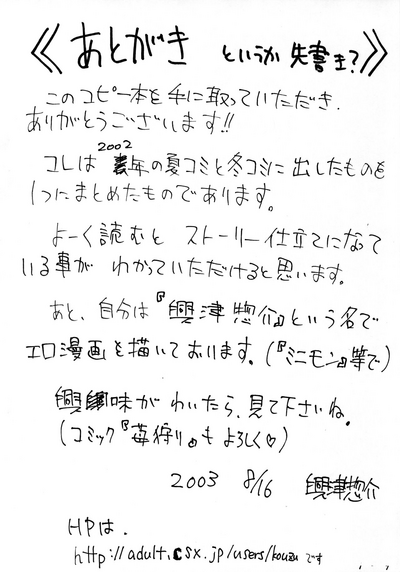 《あとがき というか 先書き?》
このコピー本を手に取っていただき、
ありがとうございます!!
コレは 2002年の夏コミと冬コミに出したものを
1つにまとめたものであります。
よーく読むと ストーリー仕立てになって
いる事が わかっていただけると思います。
あと、自分は『興津惣介』という名で
エロ漫画を描いております。(『ミニモン』等で)
興味がわいたら、見て下さいね。
(コミック『苺狩り』もよろしく♡)
2003 8/16 興津惣介
HPは、
http://adult.csx.jp/users/kouzu です